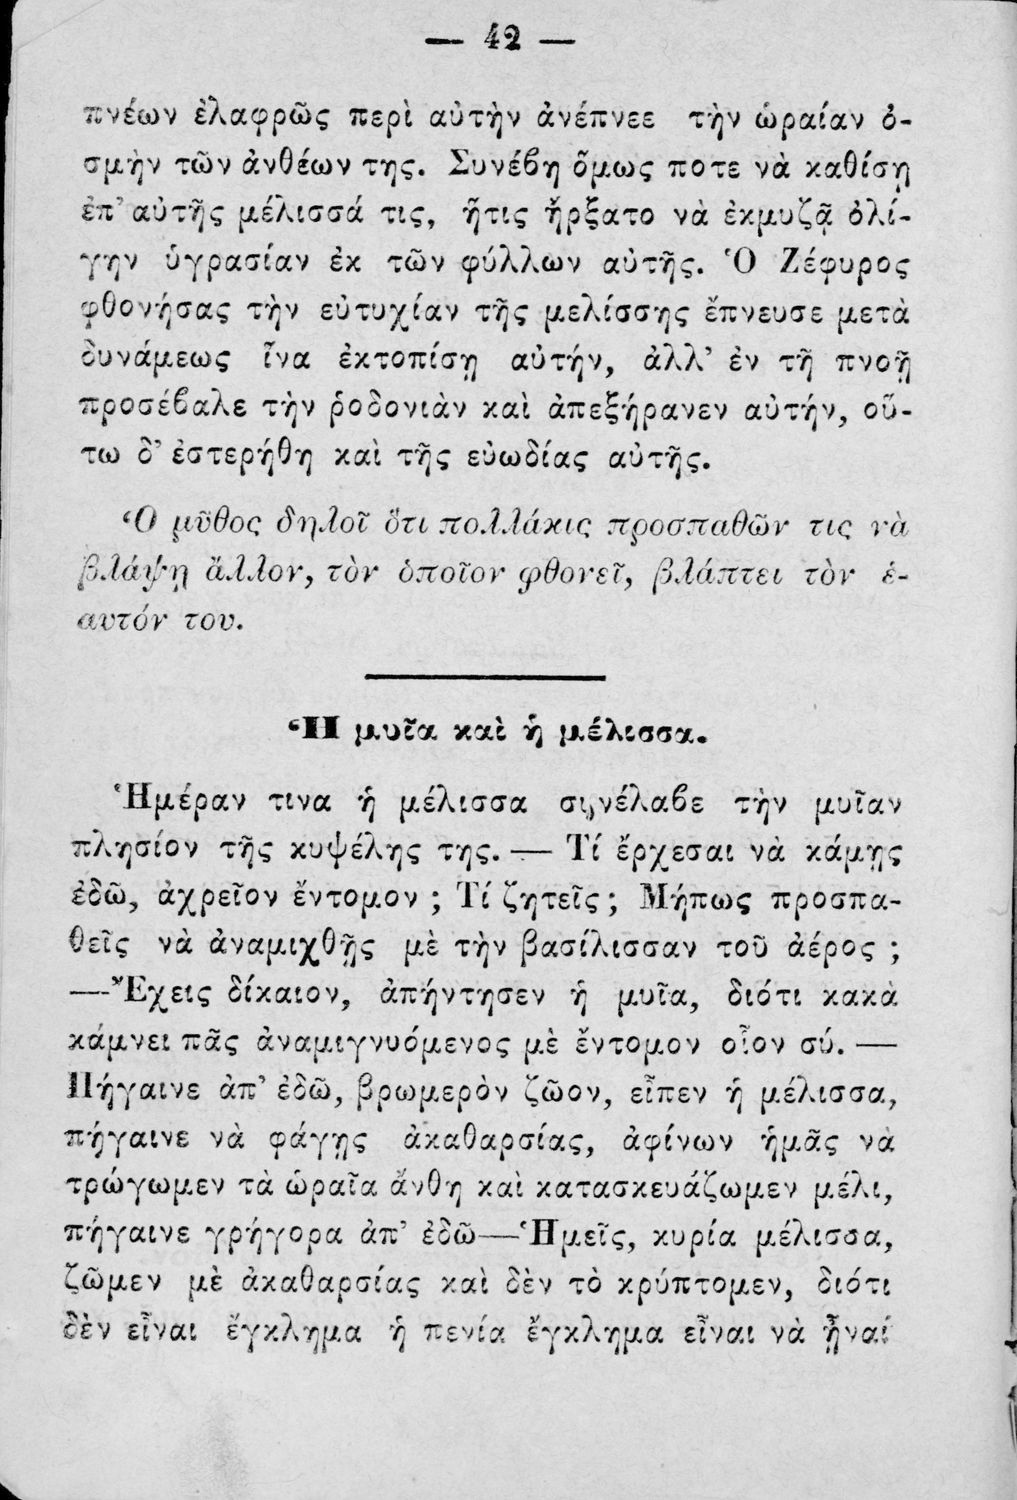 — 42 —
πνέων ἐλαφρῶς περὶ αὐτὴν ἀνέπνεε τὴν ὡραίαν ὀ-
σμὴν τῶν ἀνθέων της. Συνέβη ὅμως ποτε νὰ καθίσῃ
ἐπ' αὐτῆς μέλισσά τις, ἥτις ἤρξατο νὰ ἐκμυζᾷ ὀλί-
γην ὑγρασίαν ἐκ τῶν φύλλων αὐτῆς. Ὁ Ζέφυρος
φθονήσας τὴν εὐτυχίαν τῆς μελίσσης ἔπνευσε μετὰ
δυνάμεως ἵνα ἐκτοπίσῃ αὐτήν, ἀλλ' ἐν τῇ πνοῇ
προσέβαλε τὴν ῥοδονιὰν καὶ ἀπεξήρανεν αὐτήν, οὕ-
τω δ' ἐστερήθη καὶ τῆς εὐωδίας αὐτῆς.
Ὁ μῦθος δηλοῖ ὅτι πολλάκις προσπαθῶν τις νὰ
βλάψῃ ἄλλον, τὸν ὁποῖον φθονεῖ, βλάπτει τὸν ἑ-
αυτόν του.
Ἡ μυῖα καὶ ἡ μέλισσα.
Ἡμέραν τινα ἡ μέλισσα συνέλαβε τὴν μυῖαν
πλησίον τῆς κυψέλης της. — Τί ἔρχεσαι νὰ κάμῃς
ἐδῶ, ἀχρεῖον ἔντομον ; Τί ζητεῖς ; Μήπως προσπα-
θεῖς νὰ ἀναμιχθῇς μὲ τὴν βασίλισσαν τοῦ ἀέρος ;
— Ἔχεις δίκαιον, ἀπήντησεν ἡ μυῖα, διότι κακὰ
κάμνει πᾶς ἀναμιγνυόμενος μὲ ἔντομον οἷον σύ. —
Πήγαινε ἀπ' ἐδῶ, βρωμερὸν ζῶον, εἶπεν ἡ μέλισσα,
πήγαινε νὰ φάγῃς ἀκαθαρσίας, ἀφίνων ἡμᾶς νὰ
τρώγωμεν τὰ ὡραῖα ἄνθη καὶ κατασκευάζωμεν μέλι,
πήγαινε γρήγορα ἀπ' ἐδῶ — Ἡμεῖς, κυρία μέλισσα,
ζῶμεν μὲ ἀκαθαρσίας καὶ δὲν τὸ κρύπτομεν, διότι
δὲν εἶναι ἔγκλημα ἡ πενία ἔγκλημα εἶναι νὰ ᾖναί